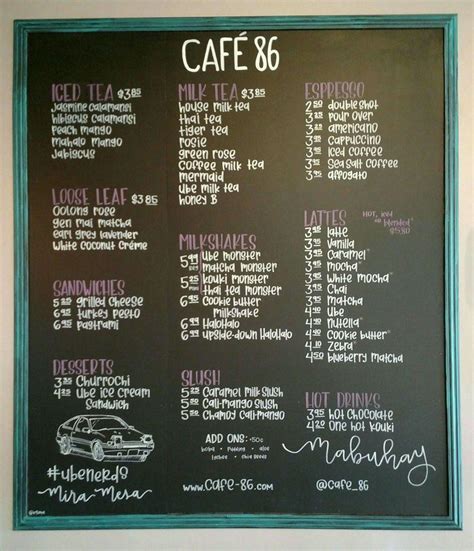 CAFÉ 86
ICED TEA $3.85
Jasmine calamansi
hibiscus calamansi
Peach mango
mahalo mango
Jabiscus
LOOSE LEAF $3.85
Oolong rose
gen mai matcha
earl grey lavender
White Coconut Créme
SANDWICHES
5.25 grilled cheese
6.95 turkey pesto
6.95 pastrami
DESSERTS
3.25 Churrochi
4.25 Ube ice cream
Sandwich
#ubenerds
Mira-Mesa
MILK TEA $3.85
house milk tea
thai tea
tiger tea
rosie
green rose
Coffee milk tea
mermaid
Ube milk tea
honey B
MILKSHAKES
5.99 Ube monster
matcha monster
5.25 kouki monster
thai tea monster
6.25 Cookie butter
milkshake
6.99 HaloHalo
6.99 upside-down HaloHalo
SLUSH
5.25 Caramel milk slush
5.00 Cali-mango slush
5.50 Chamoy Cali-mango
ADD ONS: +50¢
boba • Pudding • aloe
lychee • chia seeds
www.cafe-86.com
ESPRESSO
2.50 double shot
3.25 pour over
3.25 americano
3.95 Cappuccino
3.95 Iced Coffee
3.95 Sea Salt Coffee
3.95 affogato
LATTES
HOT, iced
or blended*
$5.80
3.95 latte
3.95 Vanilla
3.95 Caramel*
3.95 mocha*
3.95 White mocha*
3.95 Chai
3.95 matcha
4.10 Ube
4.10 nutella*
4.10 Cookie butter*
4.10 Zebra*
4.50 blueberry matcha
HOT DRINKS
3.95 hot Chocolate
4.20 One hot Kouki
Mabuhay
@cafe_86